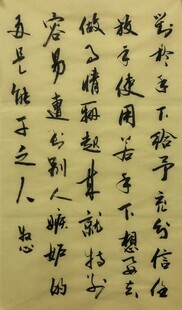 對於手下給予充分信任
放手使用若手下想去
做事情辦起來就特别
容易遭到别人嫉妒的
多是能干之人